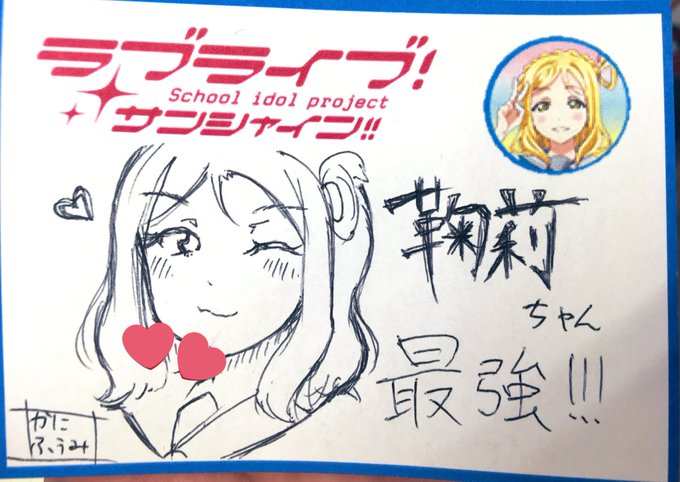 ラブライブ!
School idol project
サンシャイン!!
鞠莉
ちゃん
最強!!!
かに
ふうみ